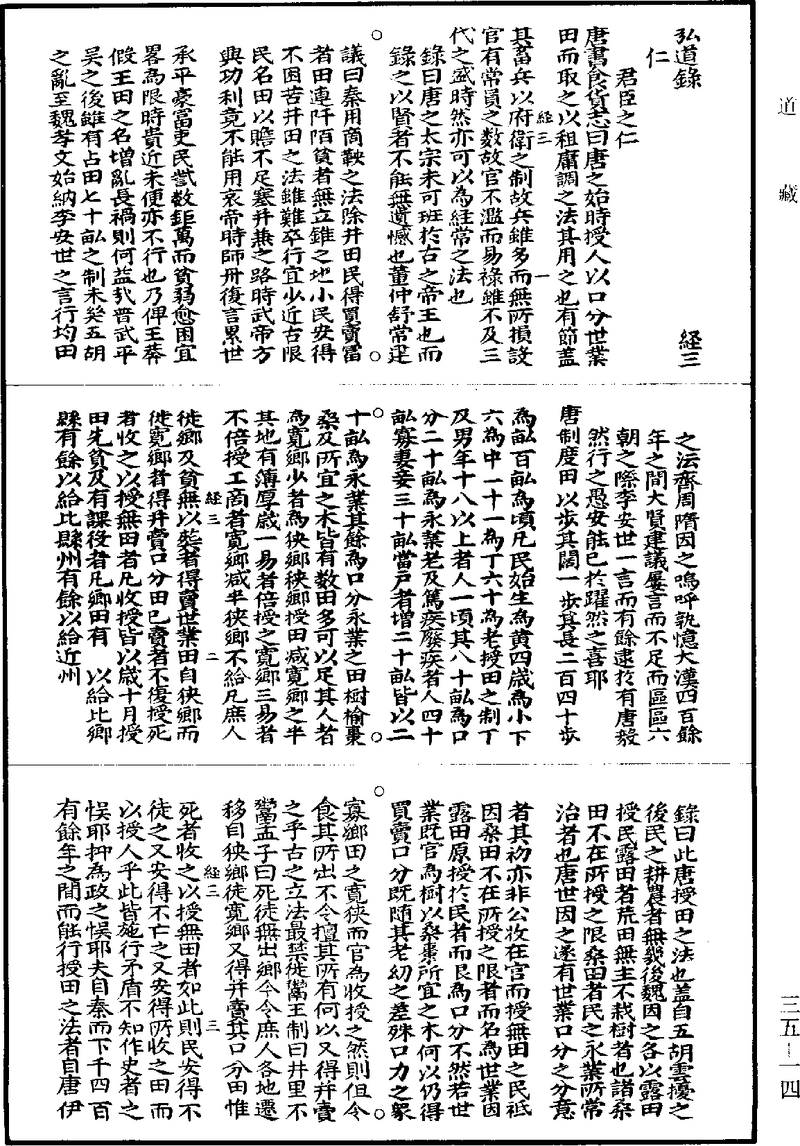 道藏
弘道錄
經三
仁
君臣之仁
唐書食貨志曰唐之始時授人以口分世業
田而取之以租庸調之法其用之也有節蓋
其畜兵以府衛之制故兵雖多而無所損設
經三
一
官有常員之數故官不濫而易祿雖不及三
代之盛時然亦可以為經常之法也
錄曰唐之太宗未可班於古之帝王也而
錄之以賢者不能無遺憾也董仲舒常建
議曰秦用商鞅之法除井田民得買賣富
者田連阡陌貧者無立錐之地小民安得
不困苦井田之法雖難卒行宜少近古限
民名田以贍不足塞并兼之路時武帝方
興功利竟不能用哀帝時師丹復言累世
承平豪富吏民訾數鉅萬而貧弱愈困宜
畧為限時貴近未便亦不行也乃俾王莽
假王田之名增亂長禍則何益哉晉武平
吳之後雖有占田七十畝之制未幾五胡
之亂至魏孝文始納李安世之言行均田
之法齊周隋因之嗚呼孰憶大漢四百餘
年之間大賢建議屢言而不足而區區六
朝之際李安世一言而有餘逮於有唐毅
然行之愚安能已於躍然之喜耶
唐制度田以步其闊一步其長二百四十步
為畝百畝為頃凡民始生為黄四歲為小下
六為中一十一為丁六十為老授田之制丁
及男年十八以上者人一頃其八十畝為口
分二十畝為永業老及篤疾廢疾者人四十
畝寡妻妾三十畝當戶者增二十畝皆以二
十畝為永業其餘為口分永業之田樹榆棗
桑及所宜之木皆有數田多可以足其人者
為寬鄉少者為狹鄉狹鄉授田減寬鄉之半
其地有薄厚歲一易者倍授之寬鄉三易者
不倍授工商者寬鄉減半狹鄉不給凡庶人
經三
二
徙鄉及貧無以葬者得賣世業田自狹鄉而
徙寬鄉者得并賣口分田已賣者不復授死
者收之以授無田者凡收授皆以歲十月授
田先貧及有課役者凡鄉田有 以給比鄉
縣有餘以給比縣州有餘以給近州
錄曰此唐授田之法也蓋自五胡雲擾之
後民之耕農者無幾後魏因之各以露田
授民露田者荒田無主不栽樹者也諸桑
田不在所授之限桑田者民之永業所常
治者也唐世因之遂有世業口分之分意
者其初亦非公收在官而授無田之民祗
因桑田不在所授之限者而名為世業因
露田原授於民者而良為口分不然若世
業既官為樹以桑棗所宜之木何以仍得
買賣口分既隨其老幼之差殊口力之衆
寡鄉田之寬狹而官為收授之然則但令
食其所出不令擅其所有何以又得并賣
之乎古之立法最禁徙鬻王制曰井里不
鬻孟子曰死徙無出鄉今令庶人各地遷
移自狹鄉徙寬鄉又得并賣其口分田惟
經三
三
死者收之以授無田者如此則民安得不
徒之又安得不亡之又安得所收之田而
以授人乎此皆施行矛盾不知作史者之
悞耶抑為政之悞耶夫自秦而下千四百
有餘年之間而能行授田之法者自唐伊
三五—一四